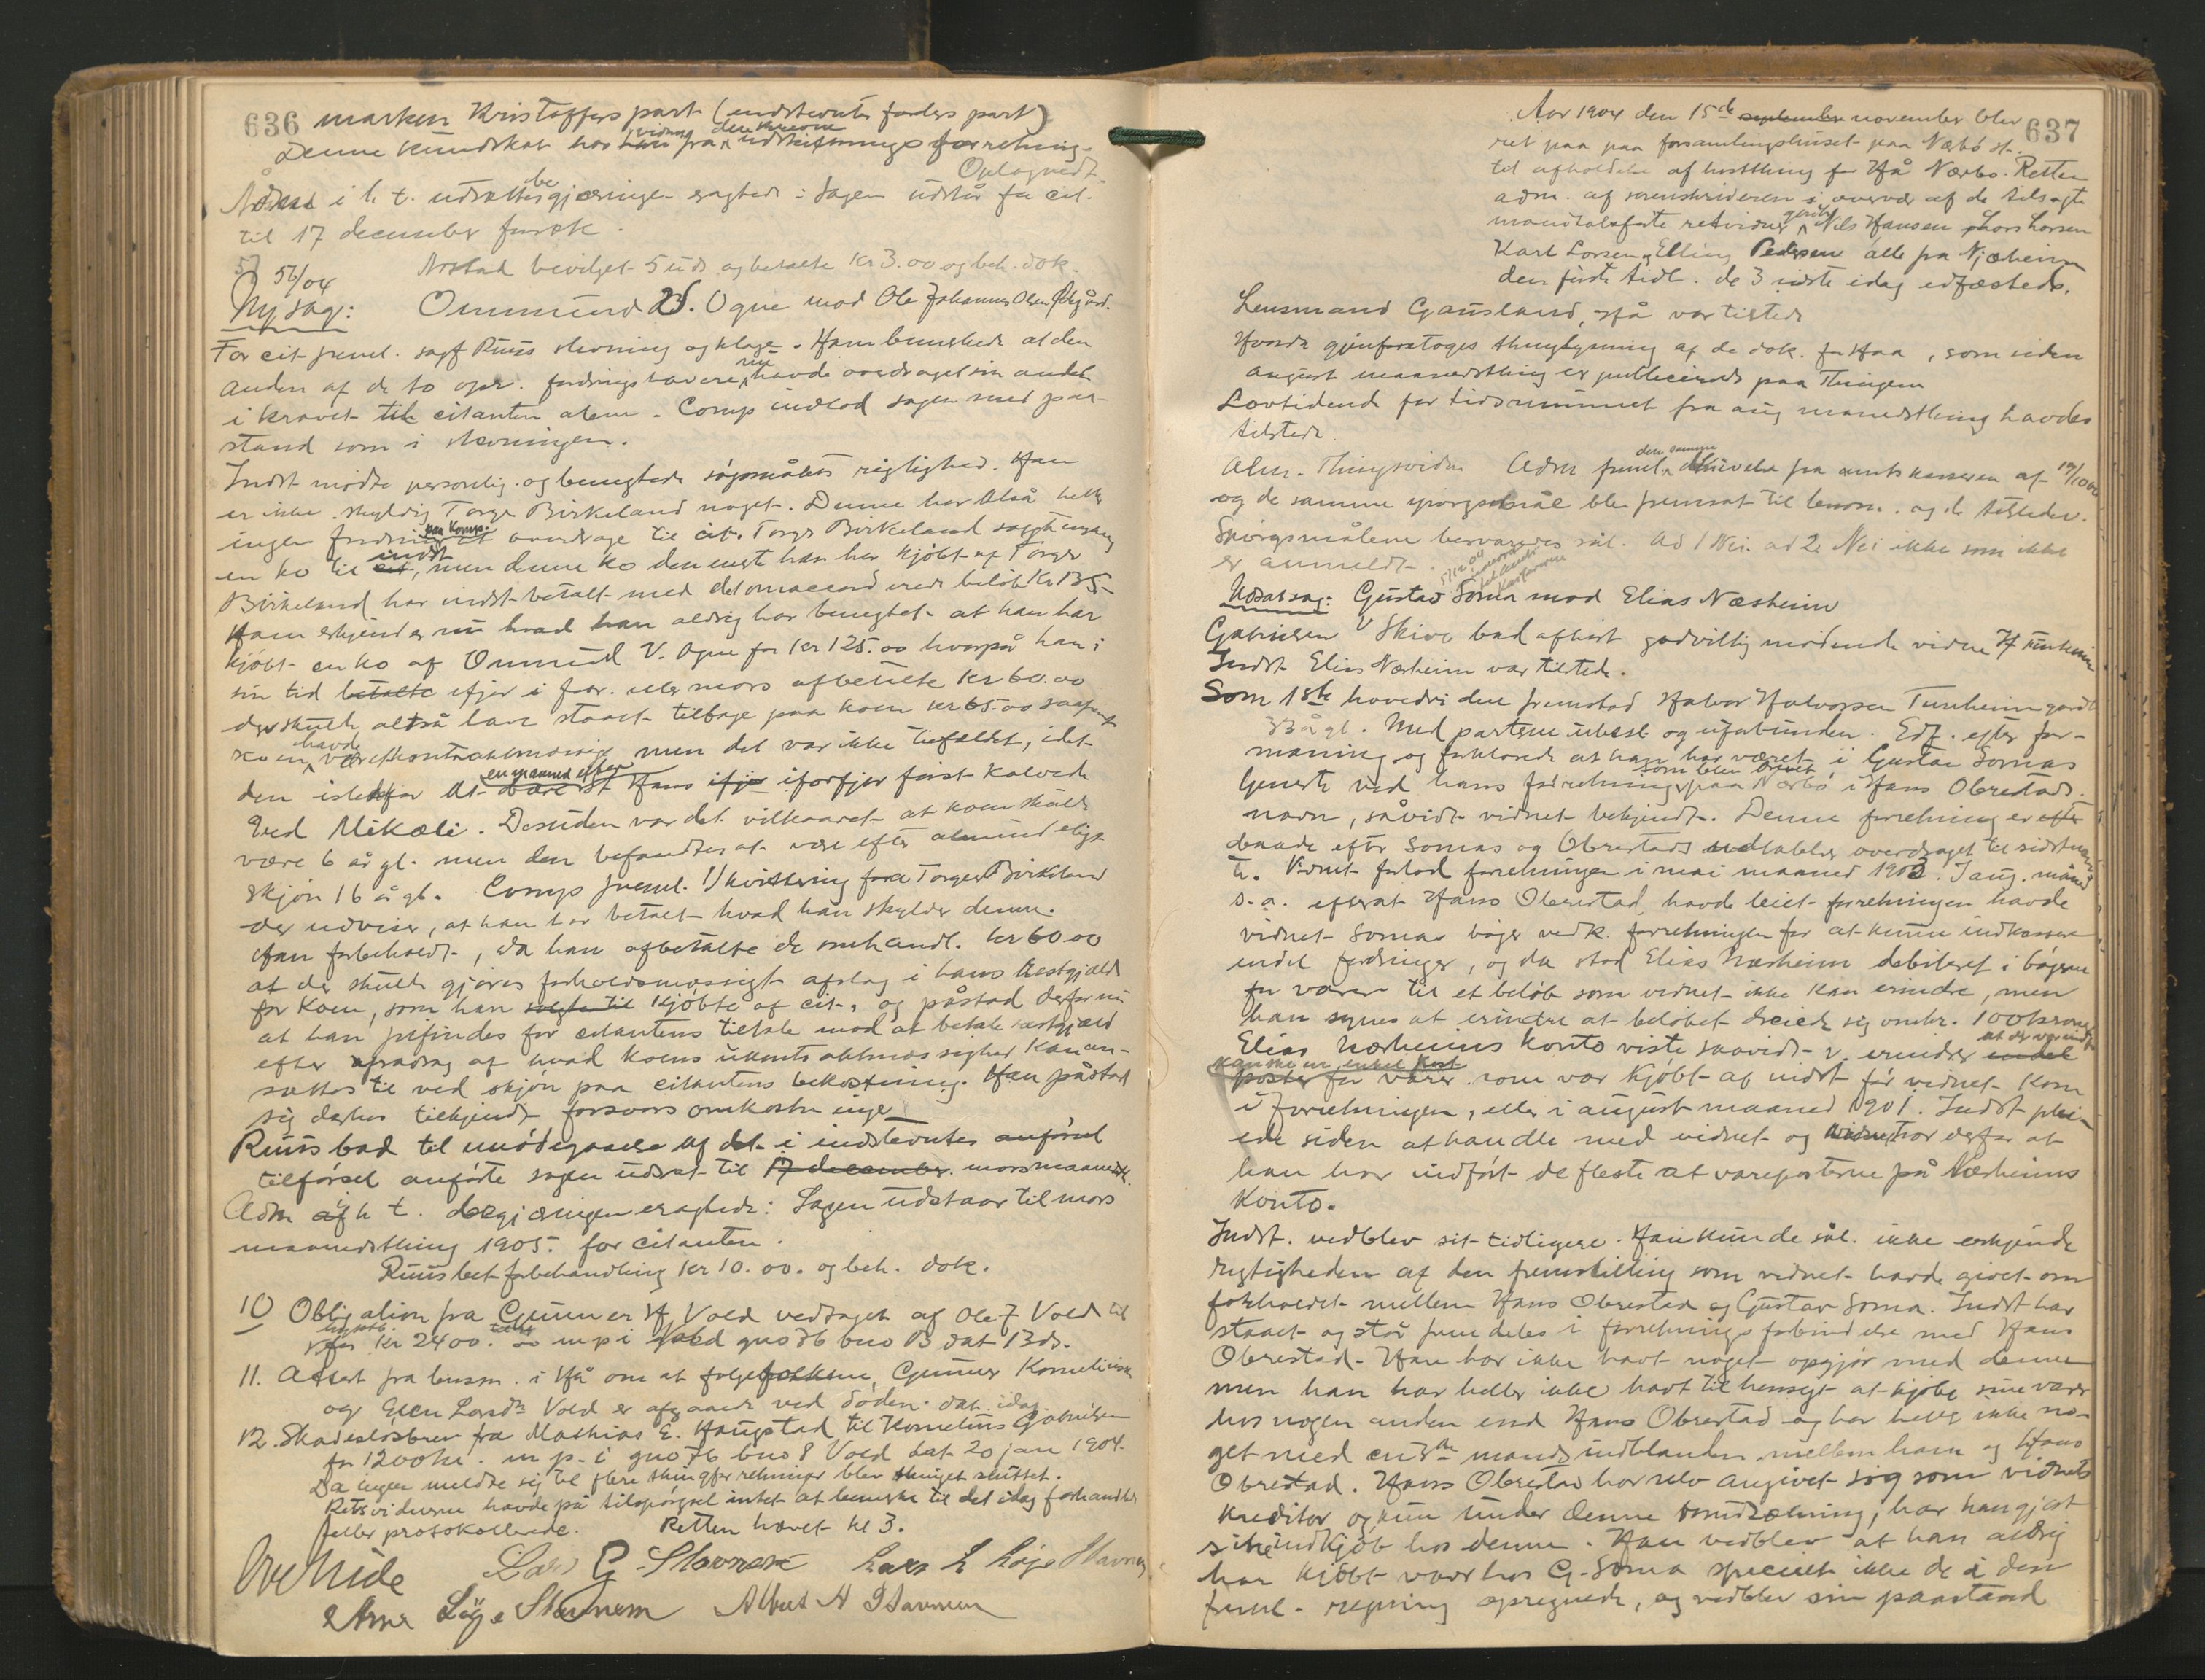 636 marken Kristoffers part (indstevntes faders part)
Denne kundskab har vidnet fra den skrevne udskiftningsforretning.
Oplæst vedt.
Adm i h. t. udsættelsesbegjæringen eragtede: Sagen udstår for cit.
til 17 december førstk.
Aarstad bevilget 5 uds og betalte kr 3.00 og beh. dok.
56/04
Ny sag: Ommund V. Ogne mod Ole Johannes Olsen Ødegård.
For cit freml. sagf Ruus stevning og klage. Han bemerkede at den
anden af de to opr. fordringshavere nu havde overdraget sin andel
i kravet til citanten alene. Comp indlod sagen med paa-
stand som i stevningen.
Indst mødte personlig og benegtede søgsmålets rigtighed. Han
er ikke skyldig Torger Birkeland noget. Denne har altså heller
ingen fordring paa Komp. at overdrage til cit. Torger Birkeland solgte engang
en ko til indst, men denne ko den eneste han har kjøbt af Torger
Birkeland har indst betalt med det omaccorderede beløb Kr 135-
Han erkjender nu hvad han aldrig har benegtet at han har
kjøbt en ko af Ommund V. Ogne for kr 125.00 hvorpå han i
sin tid betalte ifjor i febr. eller mars afbetalte kr 60.00
der skulde altså have staaet tilbage paa koen kr 65.00 saafremt
koen havde været kontraktmæssig men det var ikke tilfældet, idet
den istedetfor at være en maaned efter St Hans ifjor iforfjor først kalvede
ved Mikæli. Desuden var det vilkaaret at koen skulde
være 6 år gl. men den befandtes at være efter almindeligt
skjøn 16 år gl. Comp freml. 1) kvittering fra Torger Birkeland
der udviser, at han har betalt hvad han skylder denne.
Han forbeholdt, da han afbetalte de omhandl. kr 60.00
at der skulde gjøres forholdsmæssigt afslag i hans Restgjæld
for koen, som han solgte til kjøbte af cit., og påstod derfor nu
at han frifindes for citantens tiltale mod at betale restgjæld
efter afdrag af hvad koens ukontraktmæssighed kan an-
sættes til ved skjøn paa citantens bekostning. Han påstod
sig derhos tilkjendt forsvarsomkostninger
Ruus bad til imødegaaelse af det i indstevntes anførsel
tilførsel anførte sagen udsat til 17 december mars maanedst.
Adm af i h t. begjæringen eragtede: Sagen udstaar til mars
maanedsthing 1905 for citanten.
Ruus bet forbehandling kr 10.00. og beh. dok.
10 Obligation fra Gunner H Vold vedtaget af Ole T Vold til
for kr 2400.00 m p i Vold gno 76 bno 13 dat 13 ds.
11. Attest fra lensm. i Hå om at følgefolkene, Gunner Korneliusen
og Elen Larsdtr Vold er afgaaede ved døden. dat. idag.
12. Skadesløsbrev fra Mathias E. Haugstad til Kornelius Gabrielsen
for 1200 kr. m p. i gno 76 bno 8 Vold dat 20 jan 1904.
Da ingen meldte sig til flere thingforretninger blev thinget sluttet.
Retsvidnerne havde på tilspørgsel intet at bemerke til det idag forhandlede
eller protokollerede. Retten hævet kl 3.
Lars G Stavnem Lars L Løge Stavnem
Arne Løge Stavnem Albert A Stavnem
637
Aar 1904 den 15de september november blev
ret paa paa forsamlingshuset paa Nærbø st.
til afholdelse af høstthing for Hå Nærbø. Retten
adm. af sorenskriveren i overvær af de tilsagte
mandtalsførte retsvidner Nils Hansen Lars Larsen
Karl Larsen, Elling Pedersen alle fra Njæheim
den første tidl. de 3 sidste idag edfæstede.
Lensmand Gausland, Hå var tilstede
Hvorda gjenforetoges thinglysning af de dok. for Haa, som siden
august maanedsthing er publicerede paa Thingene
Lovtidende for tidsrummet fra aug maanedsthing havdes
tilstede.
Alm. Thingsvidne Adm freml. den samme skrivelse fra amtskasseren af 19/10 04
og de samme spørgsmål blev fremsat til lensm. og de tilstedev.
Spørgsmålene besvaredes sål. ad 1 Nei. ad 2 Nei ikke som ikke
er anmeldt.
Udsat sag: Gustav Soma mod Elias Næsheim
Gabrielsen v/ Skive bad afhørt godvillig mødende vidne H Tunheim
Indst Elias Nærheim var tilstede.
Som 1ste hovedvidne fremstod Halvor Halvorsen Tunheim gaardb
33 år gl. Med parterne ubesl. og uforbunden. Edf. efter for-
maning og forklarede at han har været i Gustav Somas
tjeneste ved hans forretning paa Nærbø som blev drevet i Hans Obrestads
navn, såvidt vidnet bekjendt. Denne forretning er efter
baade efter Somas og Obrestads udtalelse overdraget til sidstnævn-
te. Vidnet forlod forretningen i mai maaned 1903. I aug. måned
s. a. efterat Hans Obrestad havde leiet forretningen havde
vidnet Somas bøger vedk. forretningen for at kunne indkassere
endel fordringer, og da stod Elias Nærheim debiteret i bøgerne
for varer til et beløb som vidnet ikke kan erindre, men
han synes at erindre at beløbet dreiede sig omkr. 100 kroner
Elias Nærheims konto viste saavidt v. erindrer at der var endel
kanske en enkel post
poster for varer som var kjøbt af indst før vidnet kom
i forretningen, eller i august maaned 1901. Indst plei-
ede siden at handle med vidnet og vidnet tror derfor at
han har indført de fleste at vareposterne på Nærheims
konto.
Indst. vedblev sit tidligere. Han kunde sål. ikke erkjende
rigtigheden af den fremstilling som vidnet havde givet om
forholdet mellem Hans Obrestad og Gustav Soma. Indst har
staaet og står fremdeles i forretningsforbindelse med Hans
Obrestad. Han har ikke havt noget opgjør med denne
men han har heller ikke havt til hensigt at kjøbe sine varer
hos nogen anden end Hans Obrestad og har heller ikke no-
get med en 3die mands indblanden mellem ham og Hans
Obrestad. Hans Obrestad har selv angivet sig som vidnets
kreditor og kun under denne forudsætning, har han gjort
sine indkjøb hos denne. Han vedblev at han aldrig
har kjøbt varer hos G. Soma specielt ikke de i den
freml. regning opregnede, og vedblev sin paastand